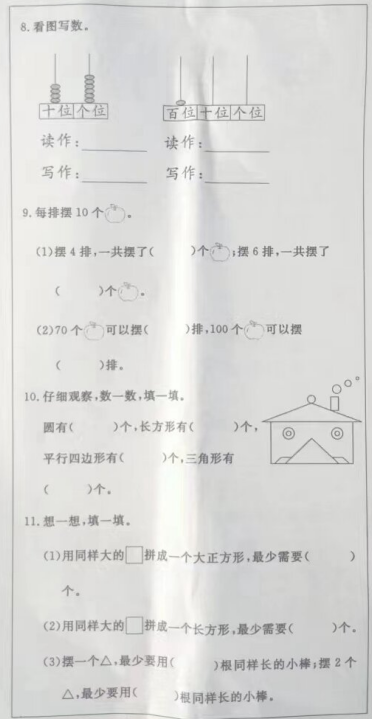 8.看图写数。
十位 个位 百位 十位 个位
读作:________ 读作:________
写作:________ 写作:________
9.每排摆10个。
(1)摆4排,一共摆了( )个;摆6排,一共摆了
( )个。
(2)70个可以摆( )排,100个可以摆
( )排。
10.仔细观察,数一数,填一填。
圆有( )个,长方形有( )个,
平行四边形有( )个,三角形有
( )个。
11.想一想,填一填。
(1)用同样大的□拼成一个大正方形,最少需要( )
个。
(2)用同样大的□拼成一个长方形,最少需要( )个。
(3)摆一个△,最少要用( )根同样长的小棒;摆2个
△,最少要用( )根同样长的小棒。